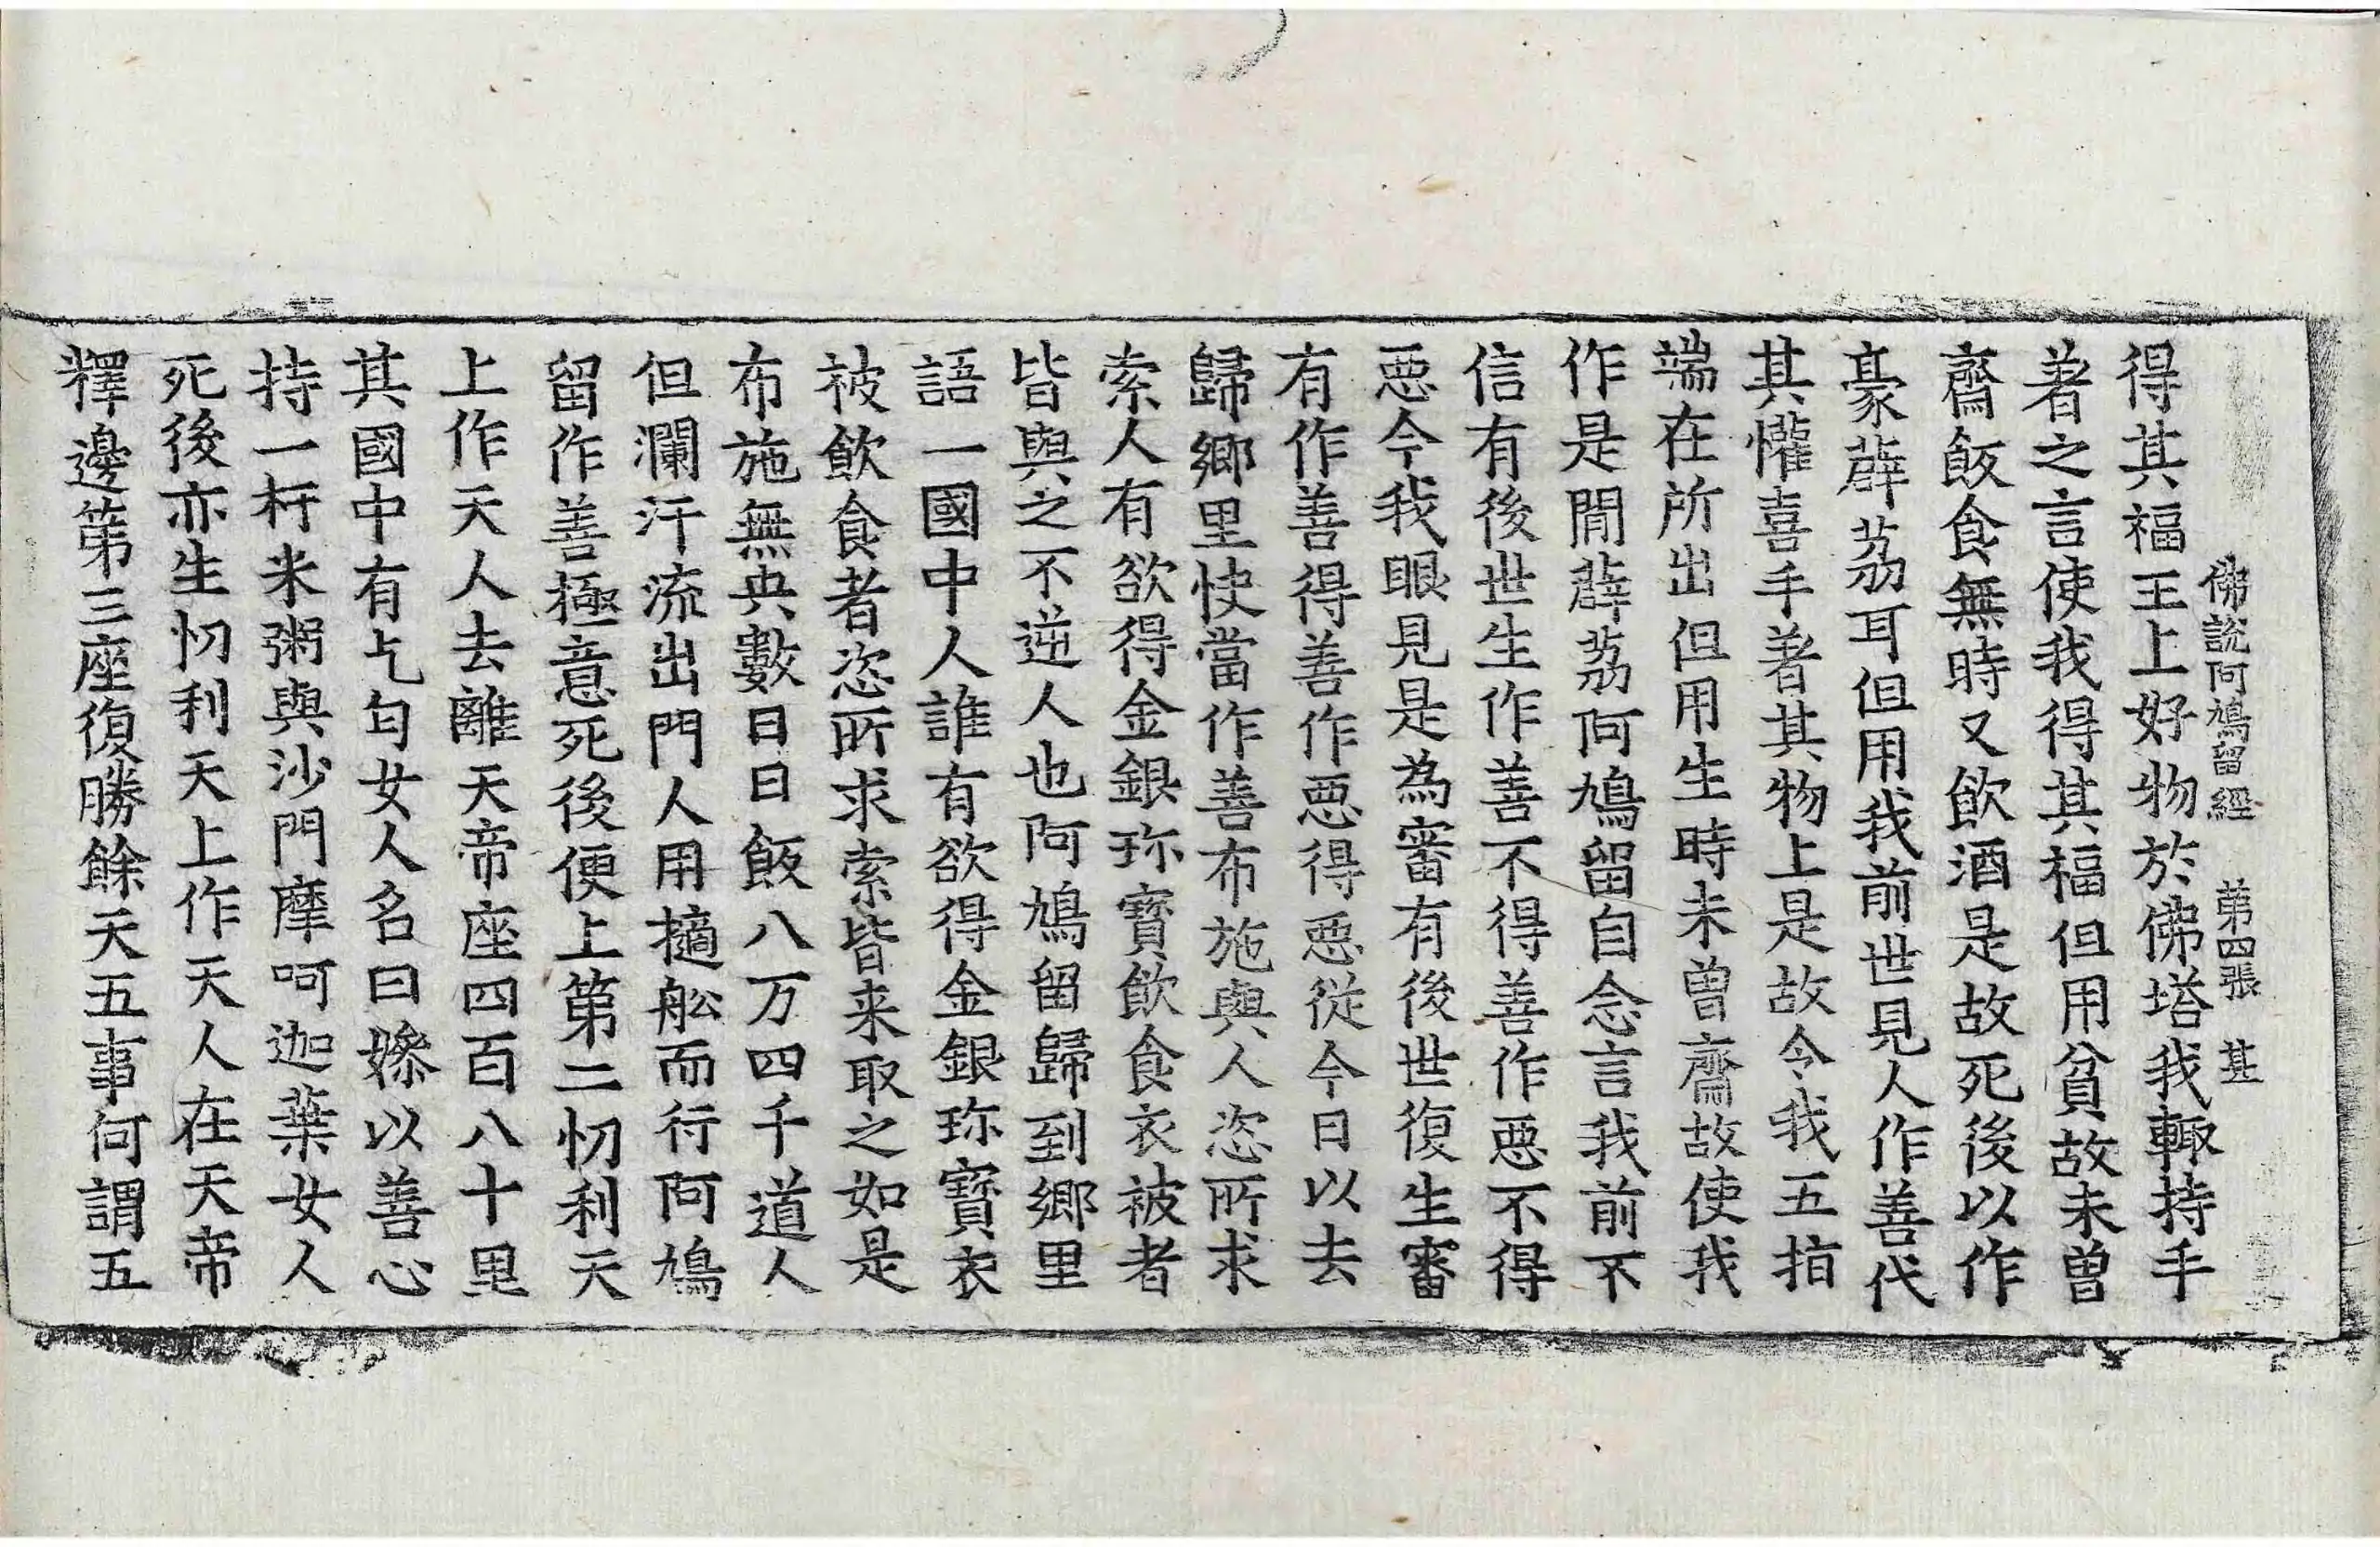 佛說阿鳩留經 第四張 甚
得其福王上好物於佛塔我輙持手
著之言使我得其福但用貧故未曾
齋飯食無時又飲酒是故死後以作
豪薜茘耳但用我前世見人作善代
其懽喜手著其物上是故令我五指
端在所出但用生時未曾齋故使我
作是閒薜茘阿鳩留自念言我前不
信有後世生作善不得善作惡不得
惡今我眼見是為審有後世復生審
有作善得善作惡得惡從今日以去
歸鄉里快當作善布施與人恣所求
索人有欲得金銀珎寶飲食衣被者
皆與之不逆人也阿鳩留歸到鄉里
語一國中人誰有欲得金銀珎寶衣
被飲食者恣所求索皆来取之如是
布施無央數日日飯八万四千道人
但瀾汗流出門人用擿舩而行阿鳩
留作善極意死後便上第二忉利天
上作天人去離天帝座四百八十里
其國中有乞匄女人名曰㜗以善心
持一杅米粥與沙門摩呵迦葉女人
死後亦生忉利天上作天人在天帝
釋邊第三座復勝餘天五事何謂五